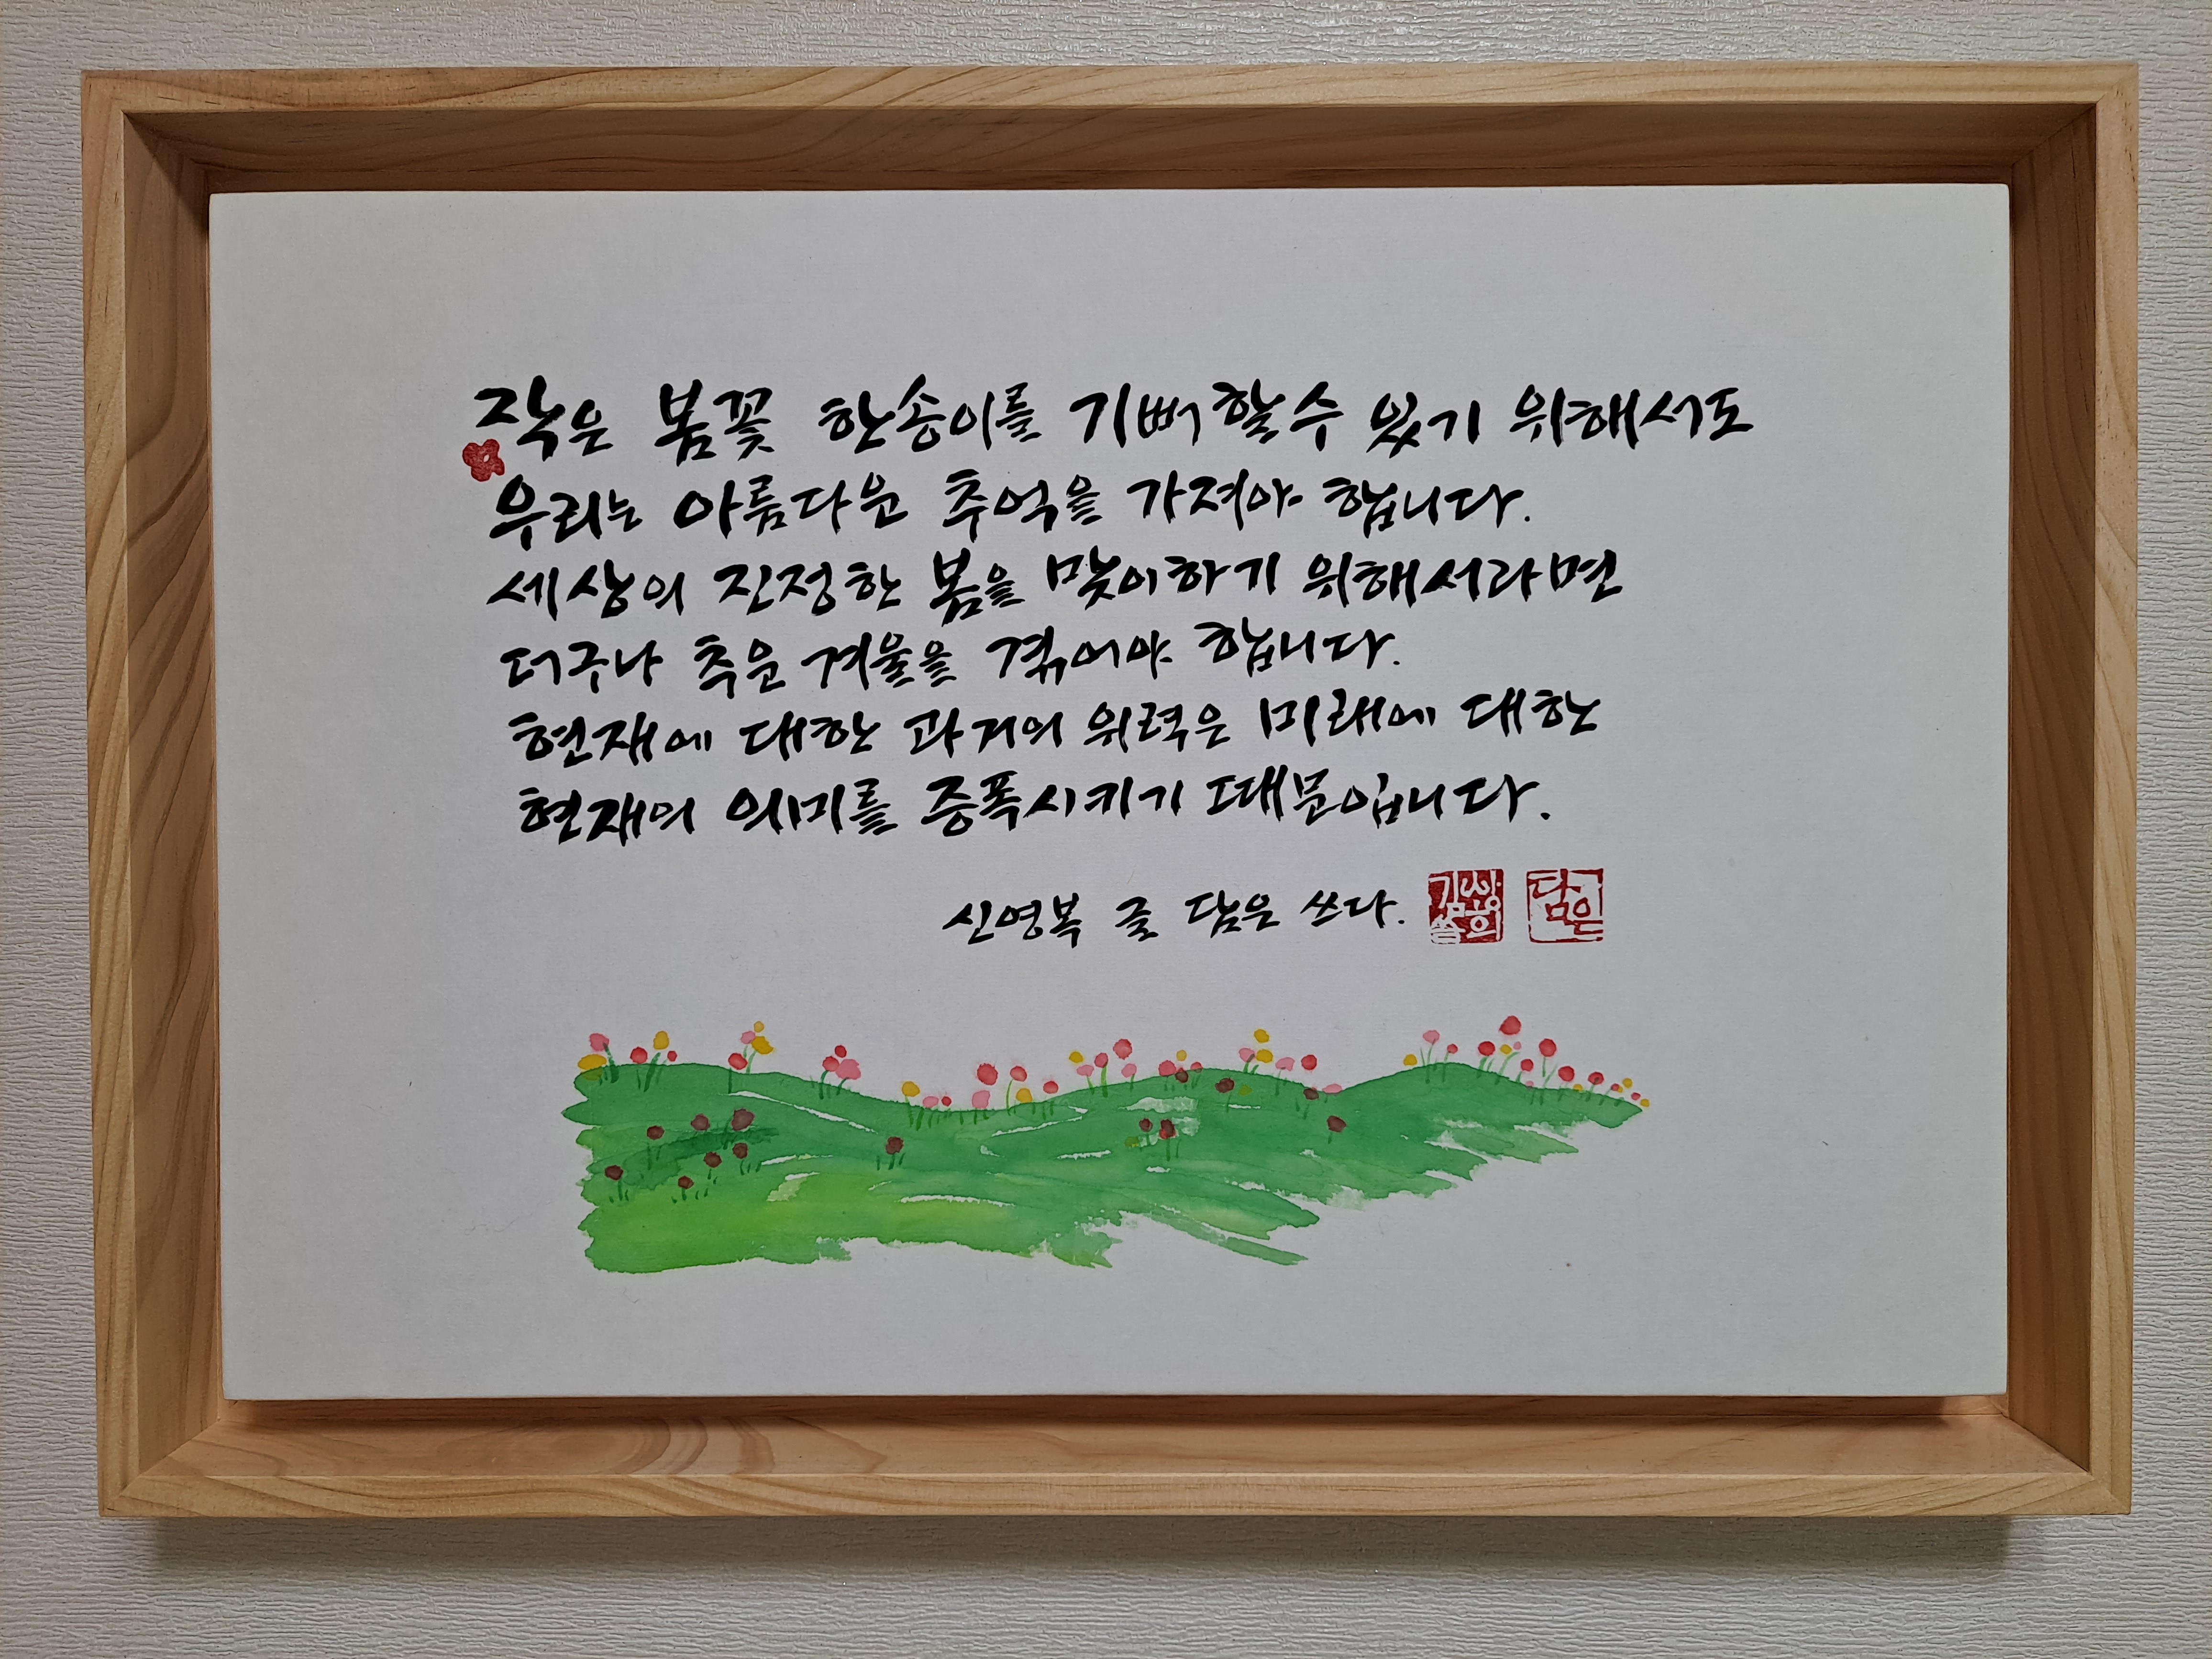 작은 봄꽃 한송이를 기뻐할수 있기 위해서도
우리는 아름다운 추억을 가져야 합니다.
세상의 진정한 봄을 맞이하기 위해서라면
더구나 추운 겨울을 겪어야 합니다.
현재에 대한 과거의 위력은 미래에 대한
현재의 의미를 증폭시키기 때문입니다.
신영복 글 담은 쓰다.
담은